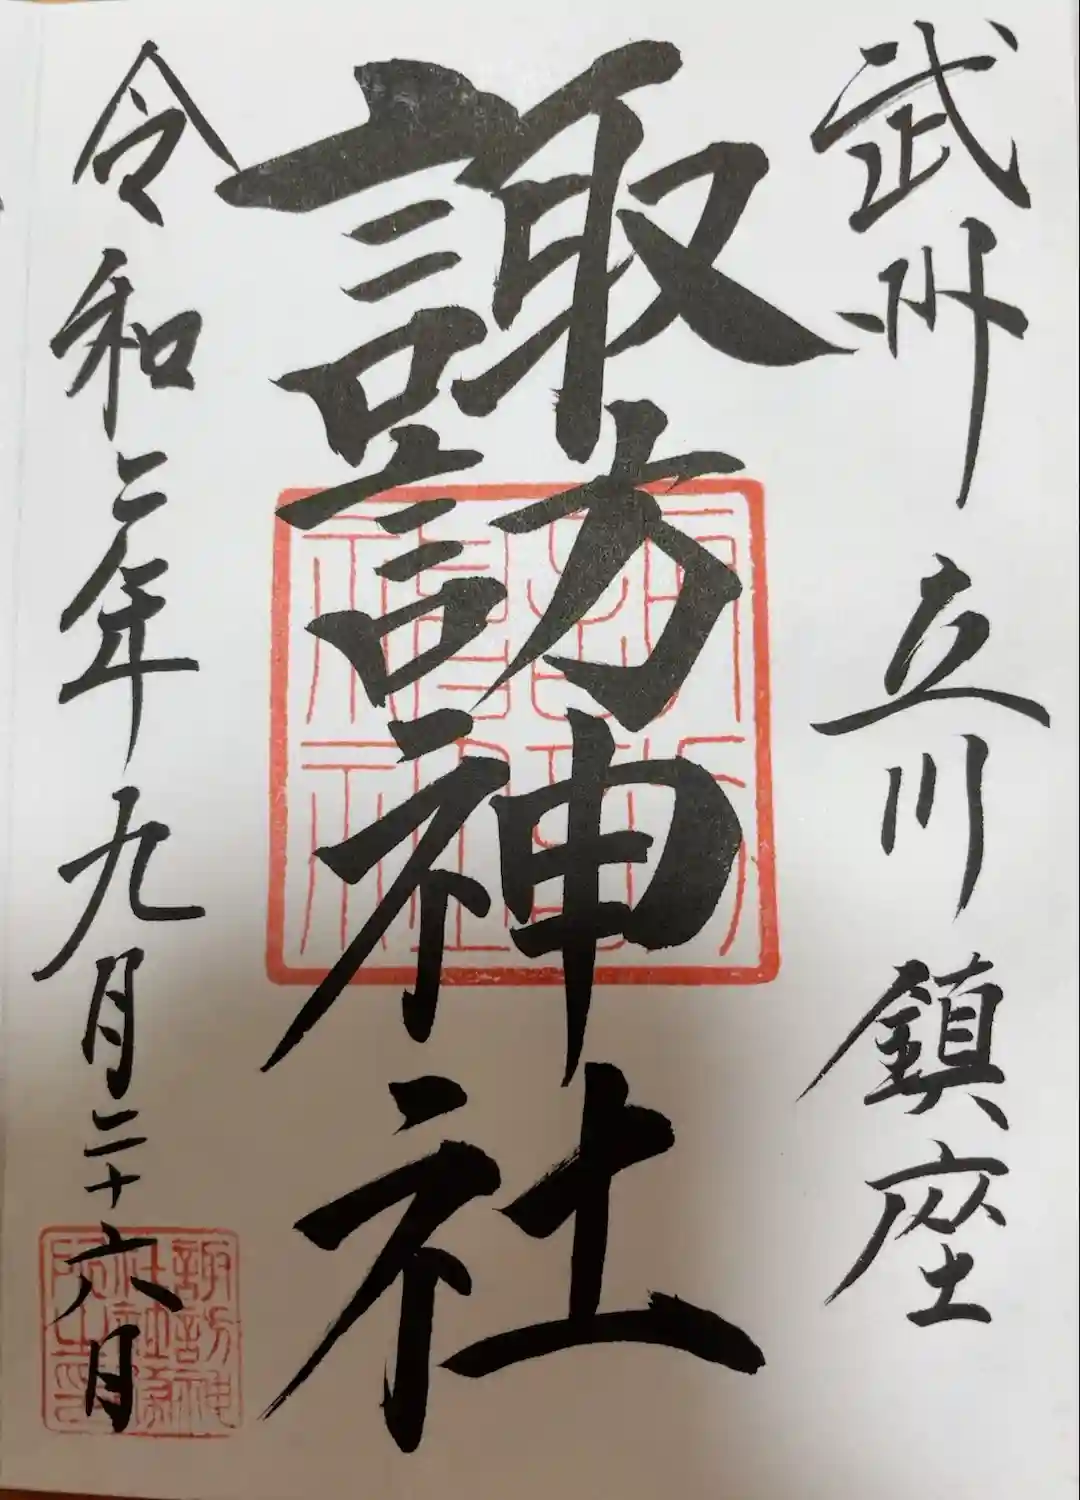 武州 立川 鎮座
諏訪神社
令和二年九月二十六日